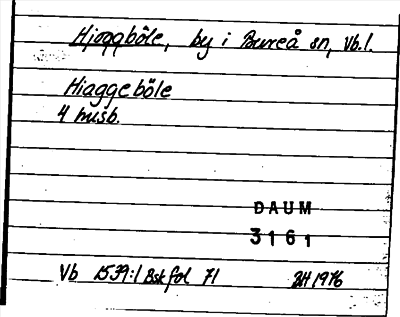 Hjoggböle, by i Bureå sn, Vb.l.
Hiaggeböle
4 husb.
DAUM
3161
Vb 1539:1 Bsk fol 71 1976